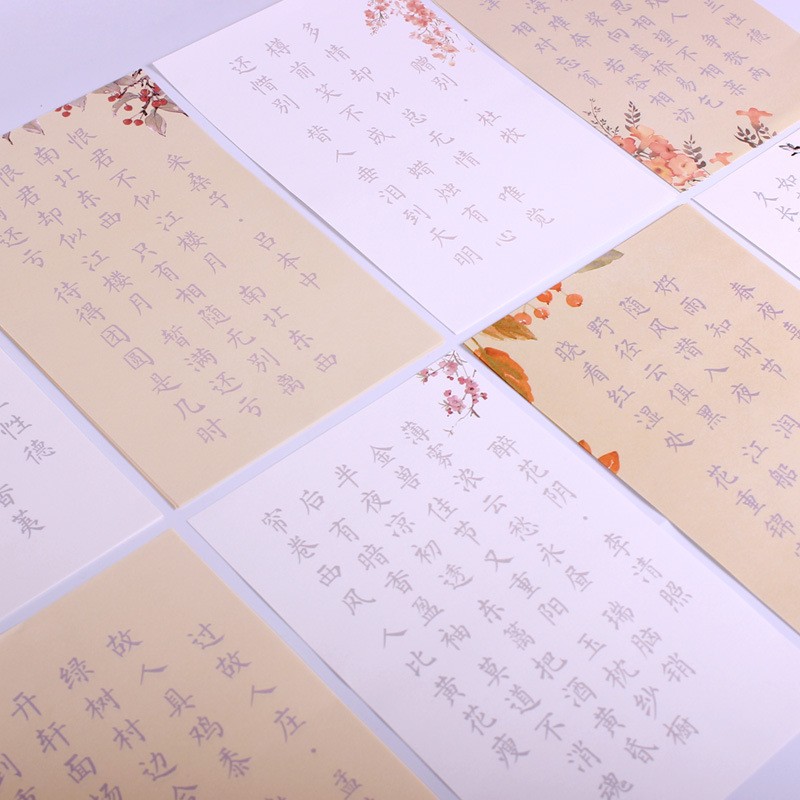 赠别·杜牧
多情却似总无情唯觉
樽前笑不成蜡烛有心
还惜别替人垂泪到天明
采桑子·吕本中
恨君不似江楼月南北东西
南北东西只有相随无别离
恨君却似江楼月暂满还亏
还亏待得团圆是几时
醉花阴·李清照
薄雾浓云愁永昼瑞脑销
金兽佳节又重阳玉枕纱橱
半夜凉初透东篱把酒黄昏
后有暗香盈袖莫道不消魂
帘卷西风人比黄花瘦
春夜喜
好雨知时节
随风潜入夜润
野径云俱黑江船
晓看红湿处花重锦
过故人庄·孟
故人具鸡黍
绿树村边合
开轩面场
到重
性德
如
久长